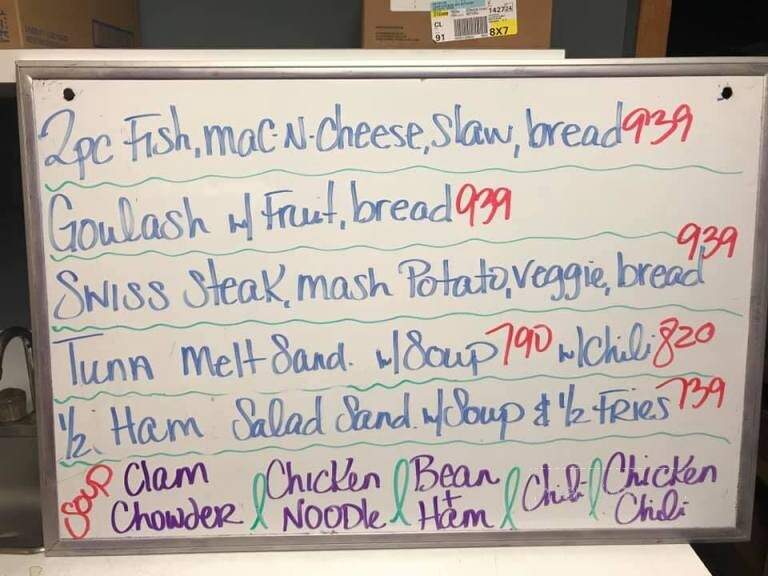 142724
CL
91
8X7
2pc Fish, mac-N-Cheese, Slaw, bread 939
Goulash w/ Fruit, bread 939
Swiss Steak, mash Potato, Veggie, bread 939
Tuna melt Sand. w/Soup 790 w/Chili 820
1/2 Ham Salad Sand. w/Soup & 1/2 FRIES 739
Soup Clam Chowder
Chicken NOODle
Bean + Ham
Chili
Chicken Chili